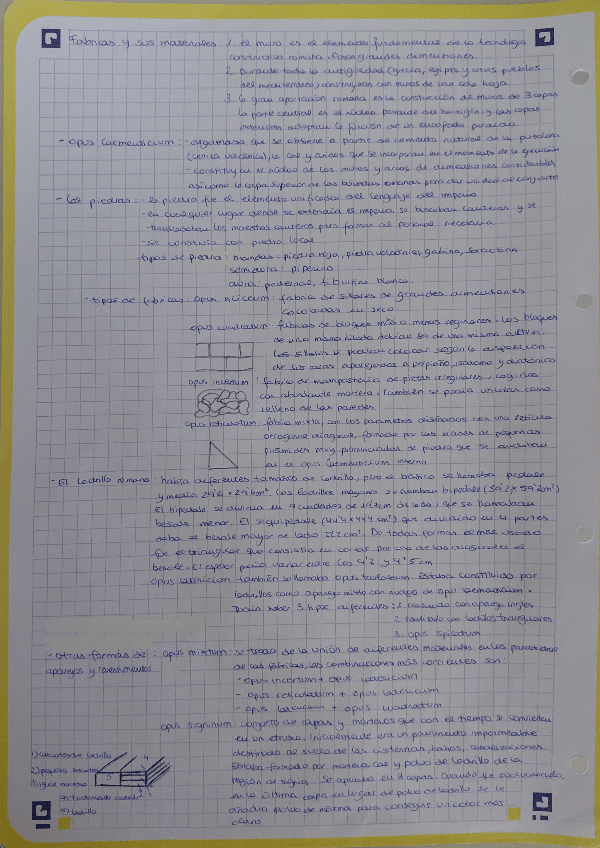 Fabricas y sus materiales 1. el muro es el elemento fundamental de la tecnología
constructiva romana. Posee grandes dimensiones.
2. Durante toda la antigüedad (grecia, egipto y otros pueblos
del mediterraneo) construyen con muros de una sola hoja
3. la gran aportación romana es la construcción de muros de 3 capas
la parte central es el núcleo portante del hormigón, y las capas
exteriores adoptan la función de un encofrado perdido.
- opus Caementicium: - argamasa que se obtiene a partir de cemento natural de la puzolana
(ceniza volcánica), la cal y áridos que se incorporan en el momento de la ejecución
- constituyen el núcleo de los muros y arcos de dimensiones considerables,
así como la capa superior de las bóvedas romanas para dar unidad al conjunto
- Las piedras: - la piedra fue el elemento unificador del lenguaje del imperio
- en cualquier lugar donde se extendía el imperio, se buscaban canteras y se
trasladaban los maestros canteros para formar al personal necesario
- se construía con piedra local
tipos de piedra: blandas: piedra roja, piedra volcánica, gabina,
semidura: piperino
dura: pedernal, travertino blanco.
- tipos de fabricas: opus siliceum: fabrica de sillares de grandes dimensiones
colocadas en seco
opus cuadratum: fabricas de bloques más o menos regulares. Los bloques
de una misma hilada debían ser de una misma altura.
Los sillares se podían colocar según la disposición
de sus caras aparejados a perpiaño, isodomo y diatónico
opus incertum: fabrica de mampostería de piezas irregulares cogidas
con abundante mortero. También se podía utilizar como
relleno de las paredes
opus reticulatum: fabrica mixta, con los parametros diseñados con una retícula
ortogonal diagonal, formada por las bases de pequeñas
pirámides muy pronunciadas de piedra que se
en el opus Caementicium interno.
- El ladrillo romano: había diferentes tamaños de ladrillo, pero el básico se llamaba pedale
y medía 29'6 x 29'6 cm². Los ladrillos mayores se llamaban bipedale (59'2 x 59'2 cm²)
El bipedale se dividía en 9 cuadrados de 19'7 cm de lado, que se llamaban
besale menor. El sesquipedale (44'4 x 44'4 cm²) que dividido en 4 partes
daba el besale mayor de lado 22'2 cm². De todas formas el más usado
fue el triangular que consistía en cortar por una de las diagonales el
besale. El espesor podía variar entre los 4'2 y 4'5 cm
opus latericium también se llamaba opus testaceum. Estaba constituido por
ladrillos como aparejo mixto con nucleo de opus caementicium.
Podía haber 3 tipos diferentes: 1. trabado con aparejo inglés
2. realizado con ladrillos triangulares
3. opus spicatum
- Otras formas de: opus mixtum: se trata de la unión de diferentes materiales en los paramentos
aparejos y revestimientos
de las fabricas, las combinaciones más corrientes son:
- opus incertum + opus latericium
- opus reticulatum + opus latericium
- opus latericium + opus cuadratum
opus signinum conjunto de capas y morteros que con el tiempo se convierten
en un estuco. Inicialmente era un pavimento impermeable
destinado al suelo de las cisternas, baños, canalizaciones.
Estaba formado por mortero, cal y polvo de ladrillo de la
región de signia. Se aplicaba en 3 capas. Cuando fue evolucionando,
en la última capa, en lugar de polvo de ladrillo se le
añadía polvo de mármol para conseguir un color más
claro
1) ladrillo
2) pequeños
3) mortero
4)
5) ladrillo